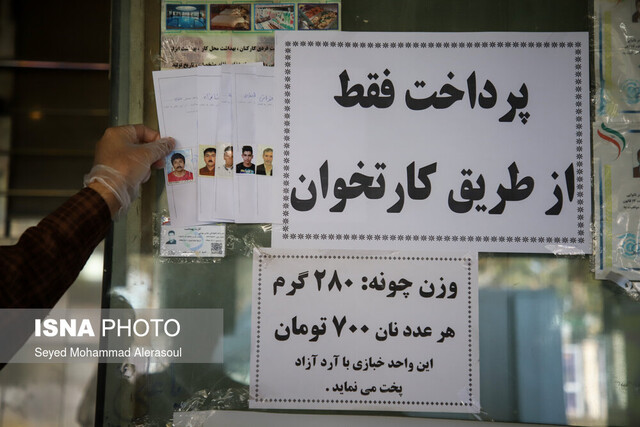 پرداخت فقط
از طریق کارتخوان
وزن چونه: ۲۸۰ گرم
هر عدد نان ۷۰۰ تومان
این واحد خبازی با آرد آزاد
پخت می نماید .
ISNA PHOTO
Seyed Mohammad Alerasoul